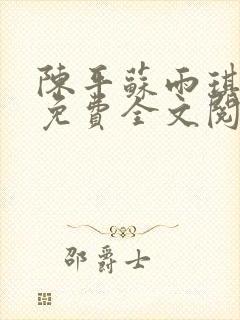 陳平蘇雨琪
免費全文閱
邵爵士